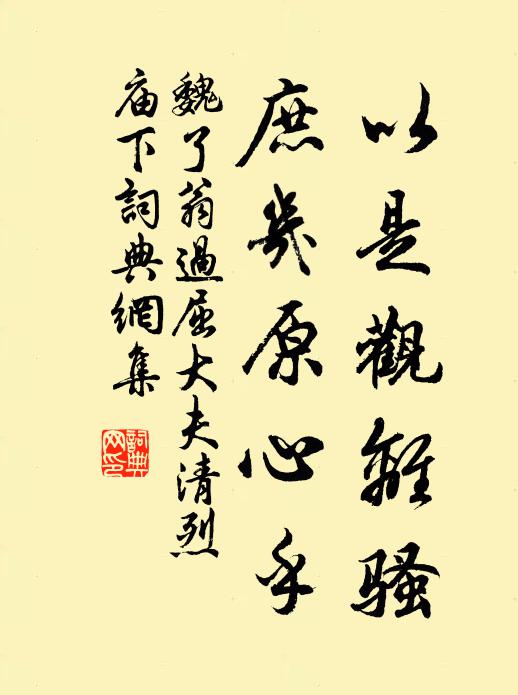 以是觀離骚
庶幾原心乎
魏了翁過屈大夫清烈
庙下詞典網集
詞典网印